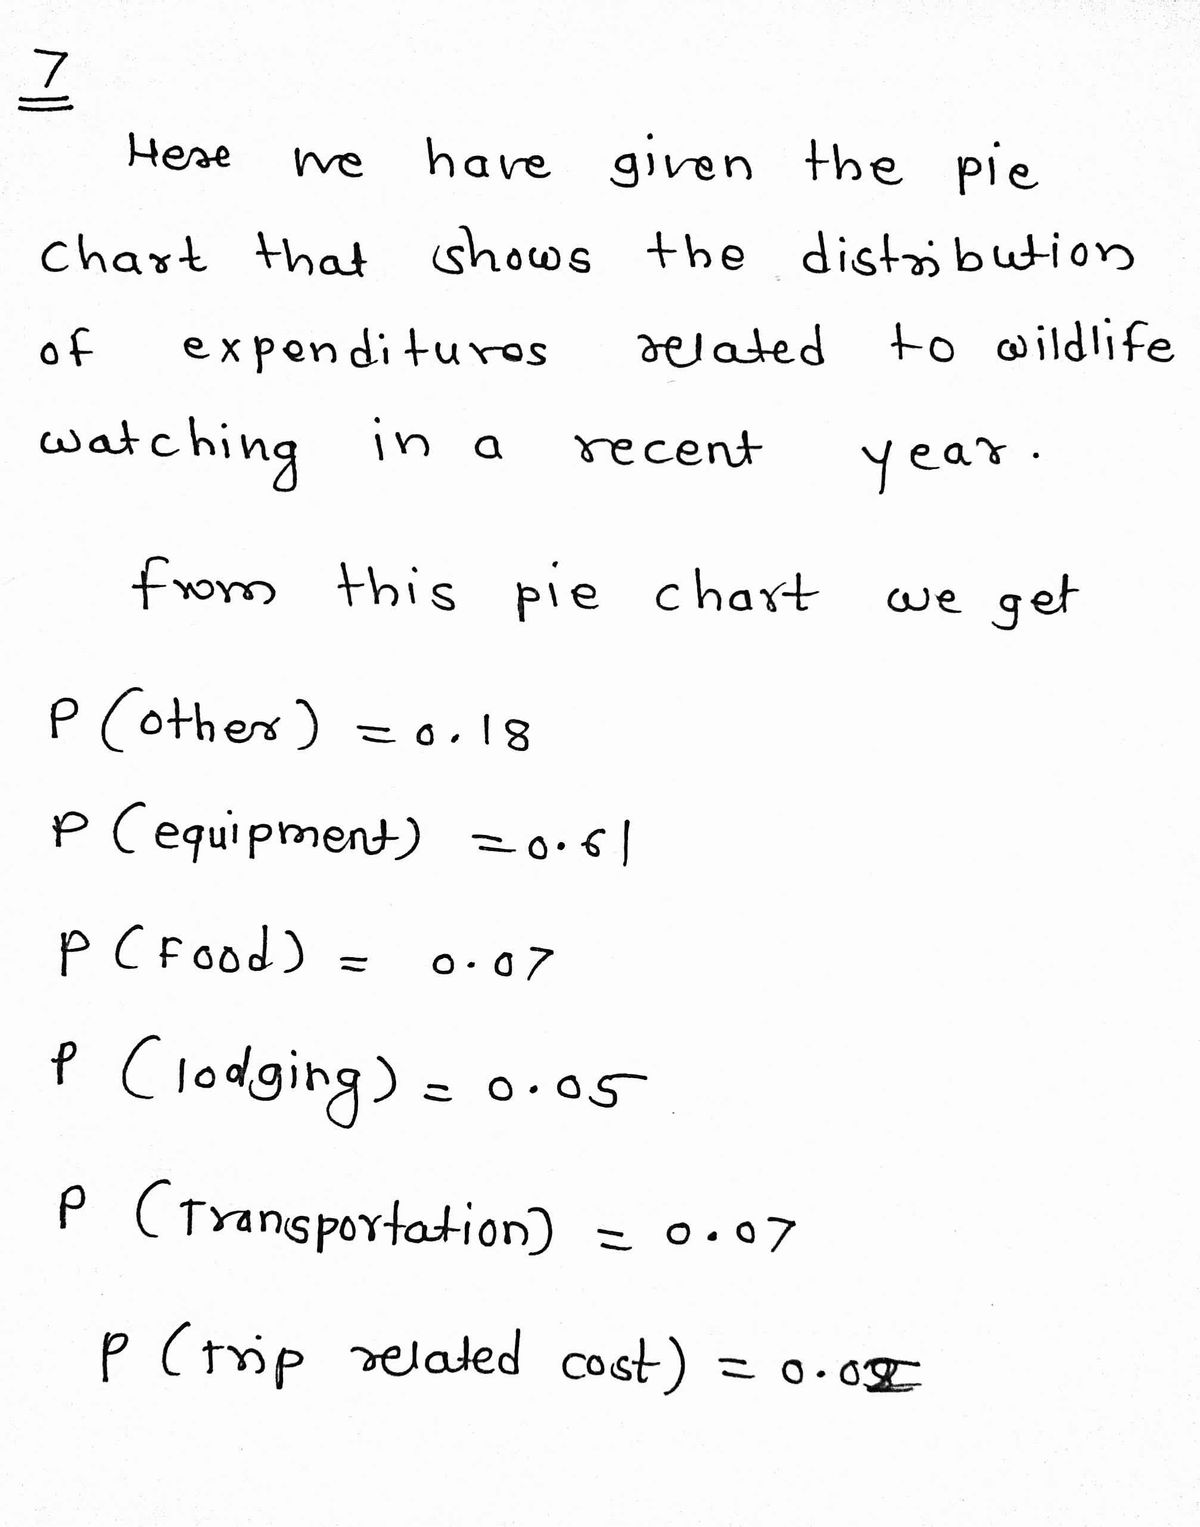 7
Here we have given the pie
chart that shows the distribution
of expenditures related to wildlife
watching in a recent year.
from this pie chart we get
P (other) = 0.18
P (equipment) = 0.61
P (Food) = 0.07
P (lodging) = 0.05
P (Transportation) = 0.07
P (trip related cost) = 0.0